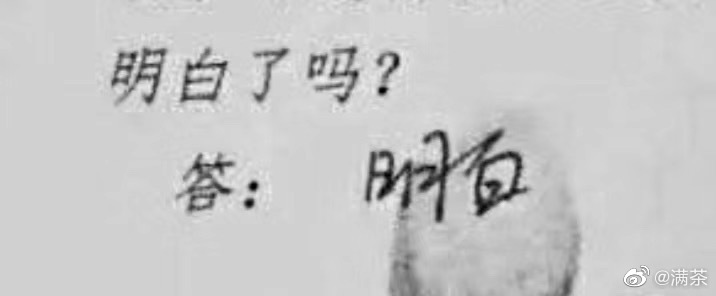 明白了吗？
答： 明白
@满茶